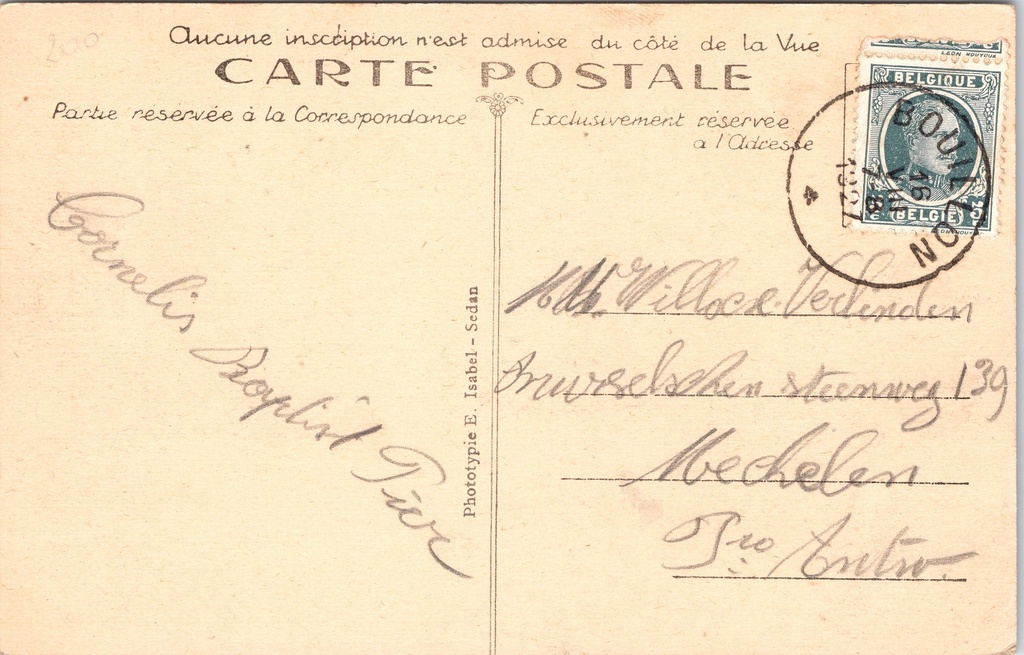 200
Aucune inscription n'est admise du côté de la Vue
CARTE POSTALE
Partie réservée à la Correspondance
Exclusivement réservée
à l'Adresse
LEON HOUYOUX
BELGIQUE
BELGIË
BOUILLON
16
1927
Cornelis
Baptist
Phototypie E. Isabel - Sedan
Willocx. Verlinden
Brusselschen steenweg 139
Mechelen
Pro. Antw.